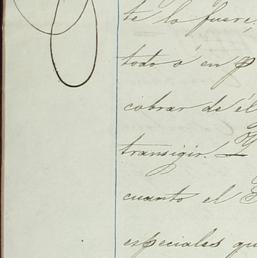 te lo fuere,
todo ó en p
cobrar de él
transigir. —
cuanto el
especiales qu